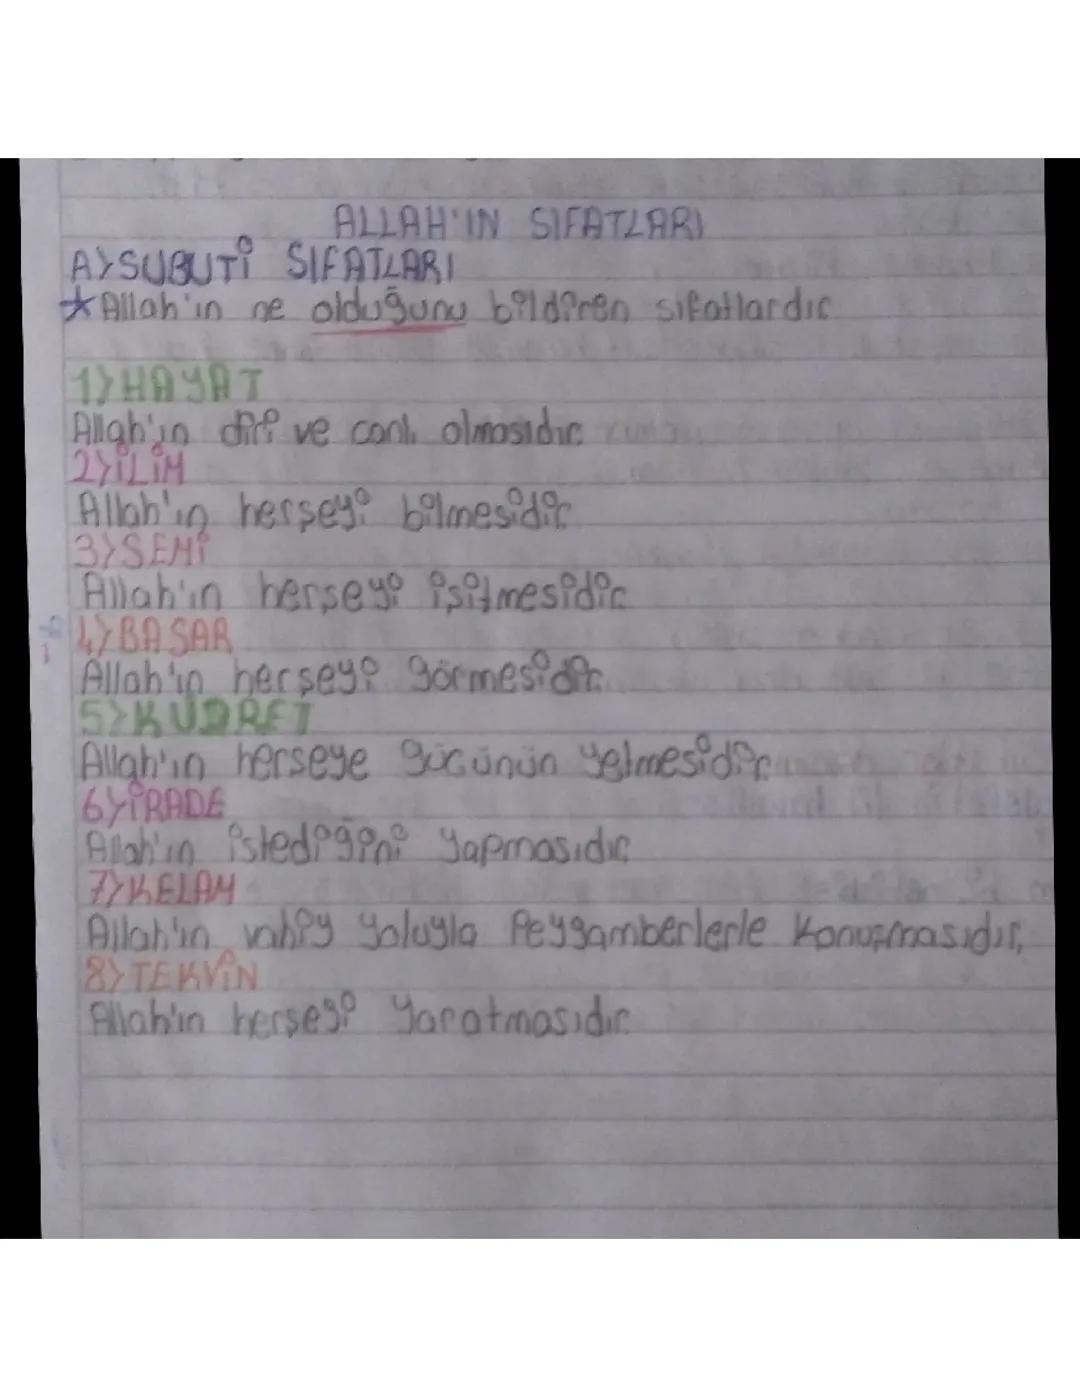 ALLAH'IN SIFATLARI
A) SUBUTİ SIFATLARI
★ Allah'ın ne olduğunu bildiren sıfatlardır
1) HAYAT
Allah'ın diri ve canlı olmasıdır
2) İLİM
Allah'ın herşeyi bilmesidir
3) SEMİ
Allah'ın herşeyi işitmesidir
4) BASAR
Allah'ın herşeyi görmesidir.
5) KUDRET
Allah'ın herşeye gücünün yetmesidir
6) İRADE
Allah'ın istediğini yapmasıdır
7) KELAM
Allah'ın vahiy yoluyla Peygamberlerle Konuşmasıdır.
8) TEKVİN
Allah'ın herşeyi yaratmasıdır